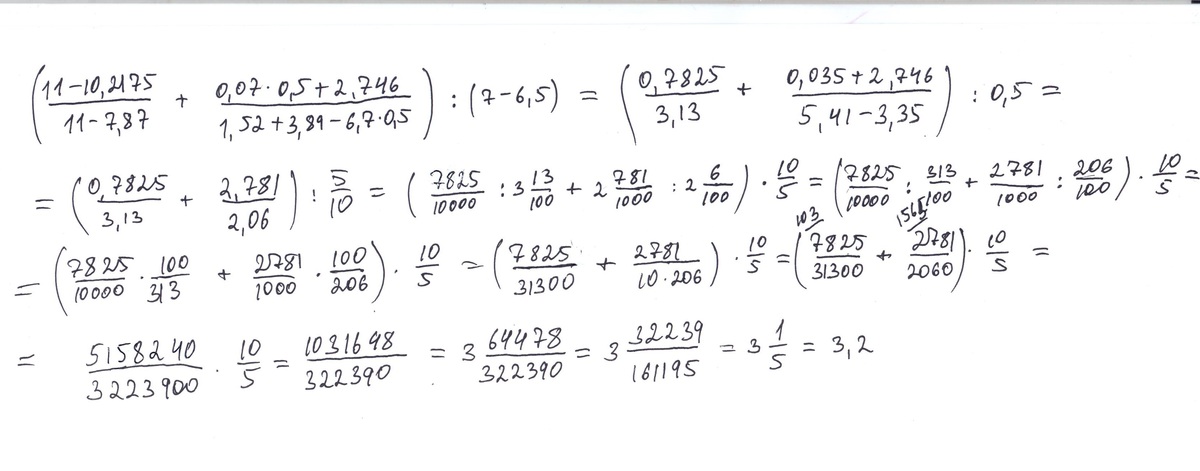 ( (11-10,2175)/(11-7,87) + (0,07·0,5+2,746)/(1,52+3,89-6,7·0,5) ) : (7-6,5) = ( 0,7825/3,13 + (0,035+2,746)/(5,41-3,35) ) : 0,5 =
= ( 0,7825/3,13 + 2,781/2,06 ) : 5/10 = ( 7825/10000 : 3 13/100 + 2 781/1000 : 2 6/100 ) · 10/5 = ( 7825/10000 : 313/100 + 2781/1000 : 206/100 ) · 10/5 =
= ( 7825/10000 · 100/313 + 2781/1000 · 100/206 ) · 10/5 = ( 7825/31300 + 2781/(10·206) ) · 10/5 = ( 103/ 7825/31300 + 1565/ 2781/2060 ) · 10/5 =
= 5158240/3223900 · 10/5 = 1031648/322390 = 3 64478/322390 = 3 32239/161195 = 3 1/5 = 3,2